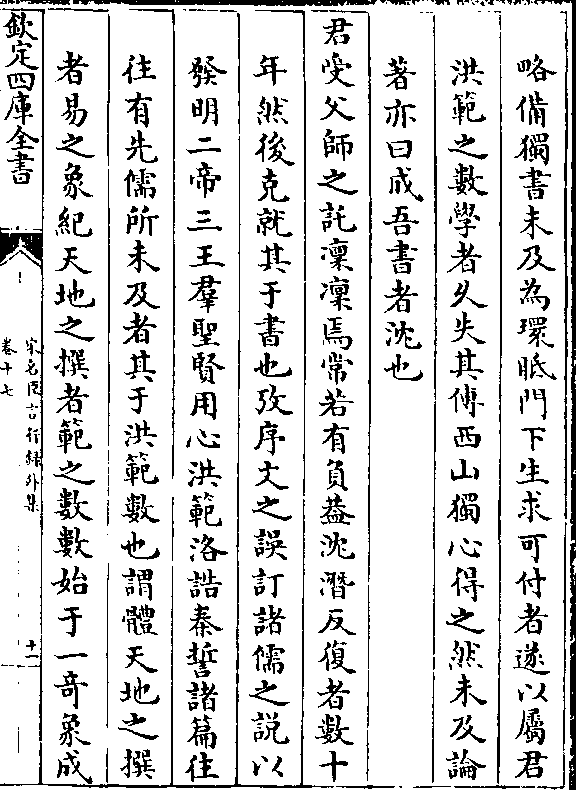 略備獨書未及為環眂門下生求可付者遂以屬君
洪範之數學者久失其傳西山獨心得之然未及論
著亦曰成吾書者沈也
君受父師之託凜凜焉常若有負葢沈潛反復者數十
年然後克就其于書也攷序文之誤訂諸儒之說以
發明二帝三王羣聖賢用心洪範洛誥秦誓諸篇往
往有先儒所未及者其于洪範數也謂體天地之撰
者易之象紀天地之撰者範之數數始于一奇象成
欽定四庫全書
宋名臣言行録外集
卷十七
十一